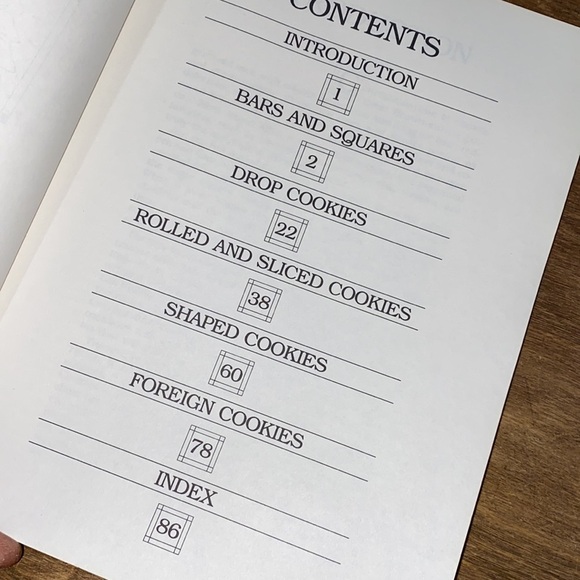 CONTENTS
INTRODUCTION
1
BARS AND SQUARES
2
DROP COOKIES
22
ROLLED AND SLICED COOKIES
38
SHAPED COOKIES
60
FOREIGN COOKIES
78
INDEX
86